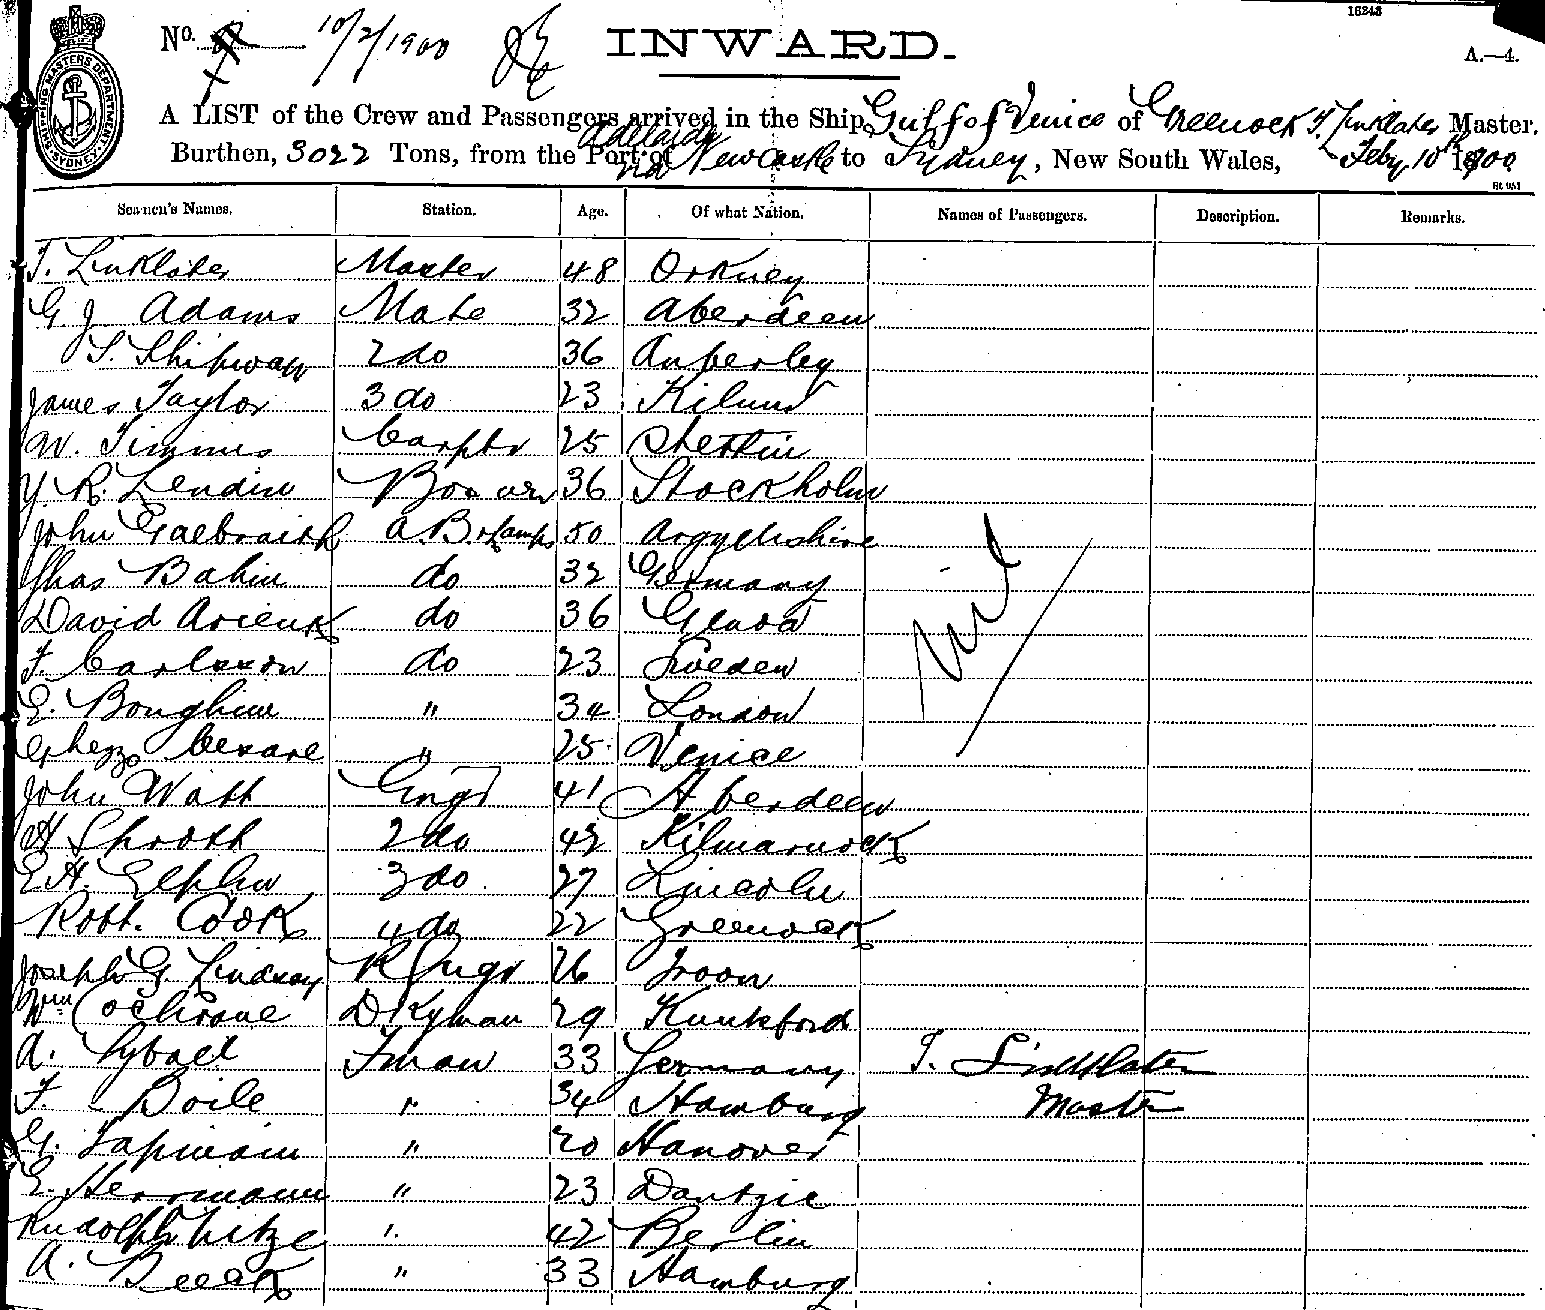 16243
No. 10/2/1900
INWARD.
A.—4.
SHIPPING MASTERS DEPARTMENT SYDNEY
A LIST of the Crew and Passengers arrived in the Ship Gulf of Venice of Greenock T. Linklater Master.
Burthen, 3022 Tons, from the Port of Adelaide via Newcastle to Sydney, New South Wales, Feby 10th 1900
Seamen's Names. Station. Age. Of what Nation. Names of Passengers. Description. Remarks.
T. Linklater Master 48 Orkney
G. J. Adams Mate 32 Aberdeen
S. Shipway 2 do 36 Amberley
James Taylor 3 do 23
W. Timmis Carptr 25 Stettin
Y. R. Lendin Bosun 36 Stockholm
John Galbraith A.B. & Lamps 50 Argyleshire
Chas Bahin do 32 Germany
David do 36 Genoa
F. Carlsson do 23 Sweden
E. " 34 London
Ghezzo Cesare " 25 Venice
Nil
John Watt Engr 41 Aberdeen
H Shrott 2 do 42 Kilmarnock
E H. Elphin 3 do 27 Lincoln
Robt. Cook 4 do 22 Greenock
Joseph G Lindsay R Engr 26 Troon
Wm Cochrane DKyman 29
A. Fman 33 Germany T. Linklater
F. Boile " 34 Hamburg Master
G. " 20 Hanover
E. Herrmann " 23 Dantzic
Rudolph " 42 Berlin
A. Beeck " 33 Hamburg